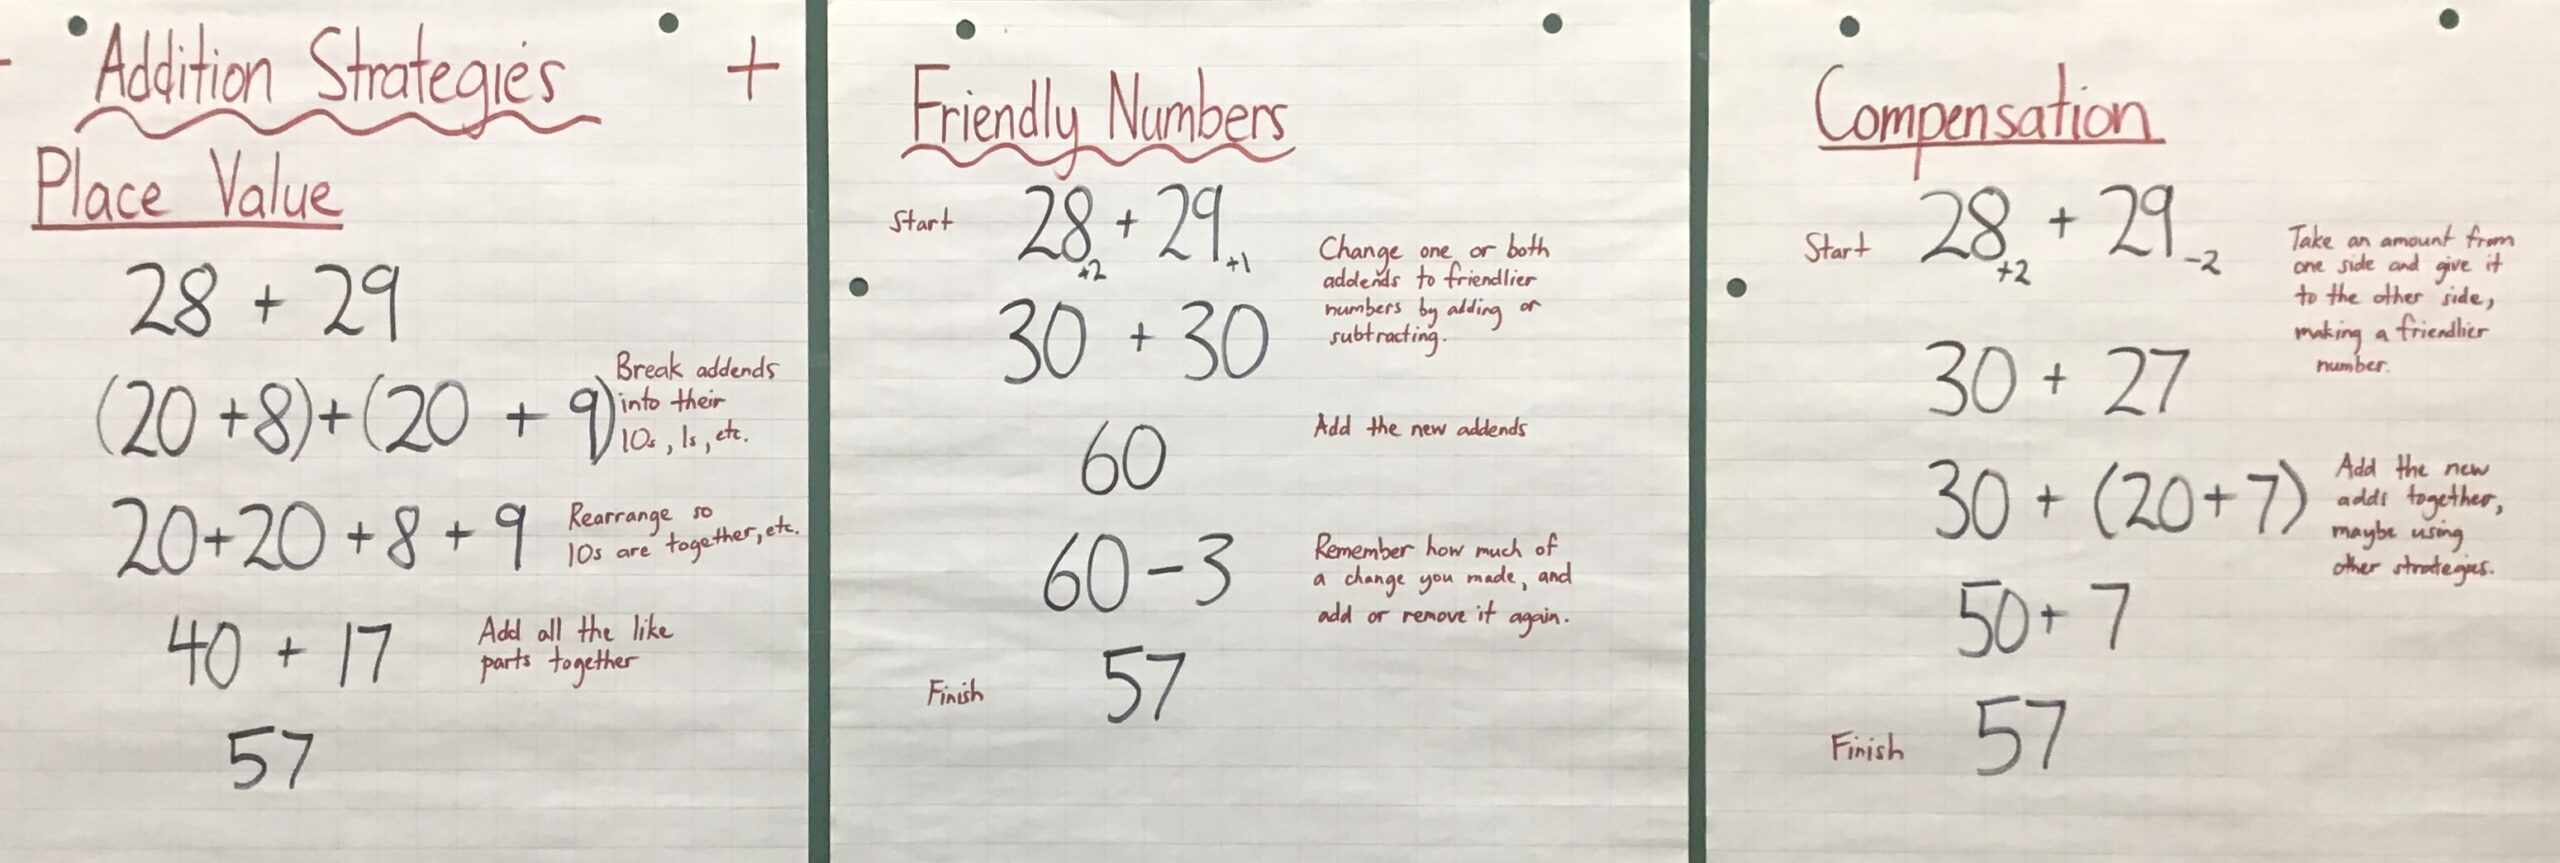 Addition Strategies +
Place Value
28 + 29
(20 + 8) + (20 + 9)
Break addends
into their
10s, 1s, etc.
20 + 20 + 8 + 9
Rearrange so
10s are together, etc.
40 + 17
Add all the like
parts together
57
Friendly Numbers
Start
28 + 29
+2 +1
Change one or both
addends to friendlier
numbers by adding or
subtracting.
30 + 30
60
Add the new addends
60 - 3
Remember how much of
a change you made, and
add or remove it again.
Finish
57
Compensation
Start
28 + 29
+2 -2
Take an amount from
one side and give it
to the other side,
making a friendlier
number.
30 + 27
30 + (20 + 7)
Add the new
adds together,
maybe using
other strategies.
50 + 7
Finish
57